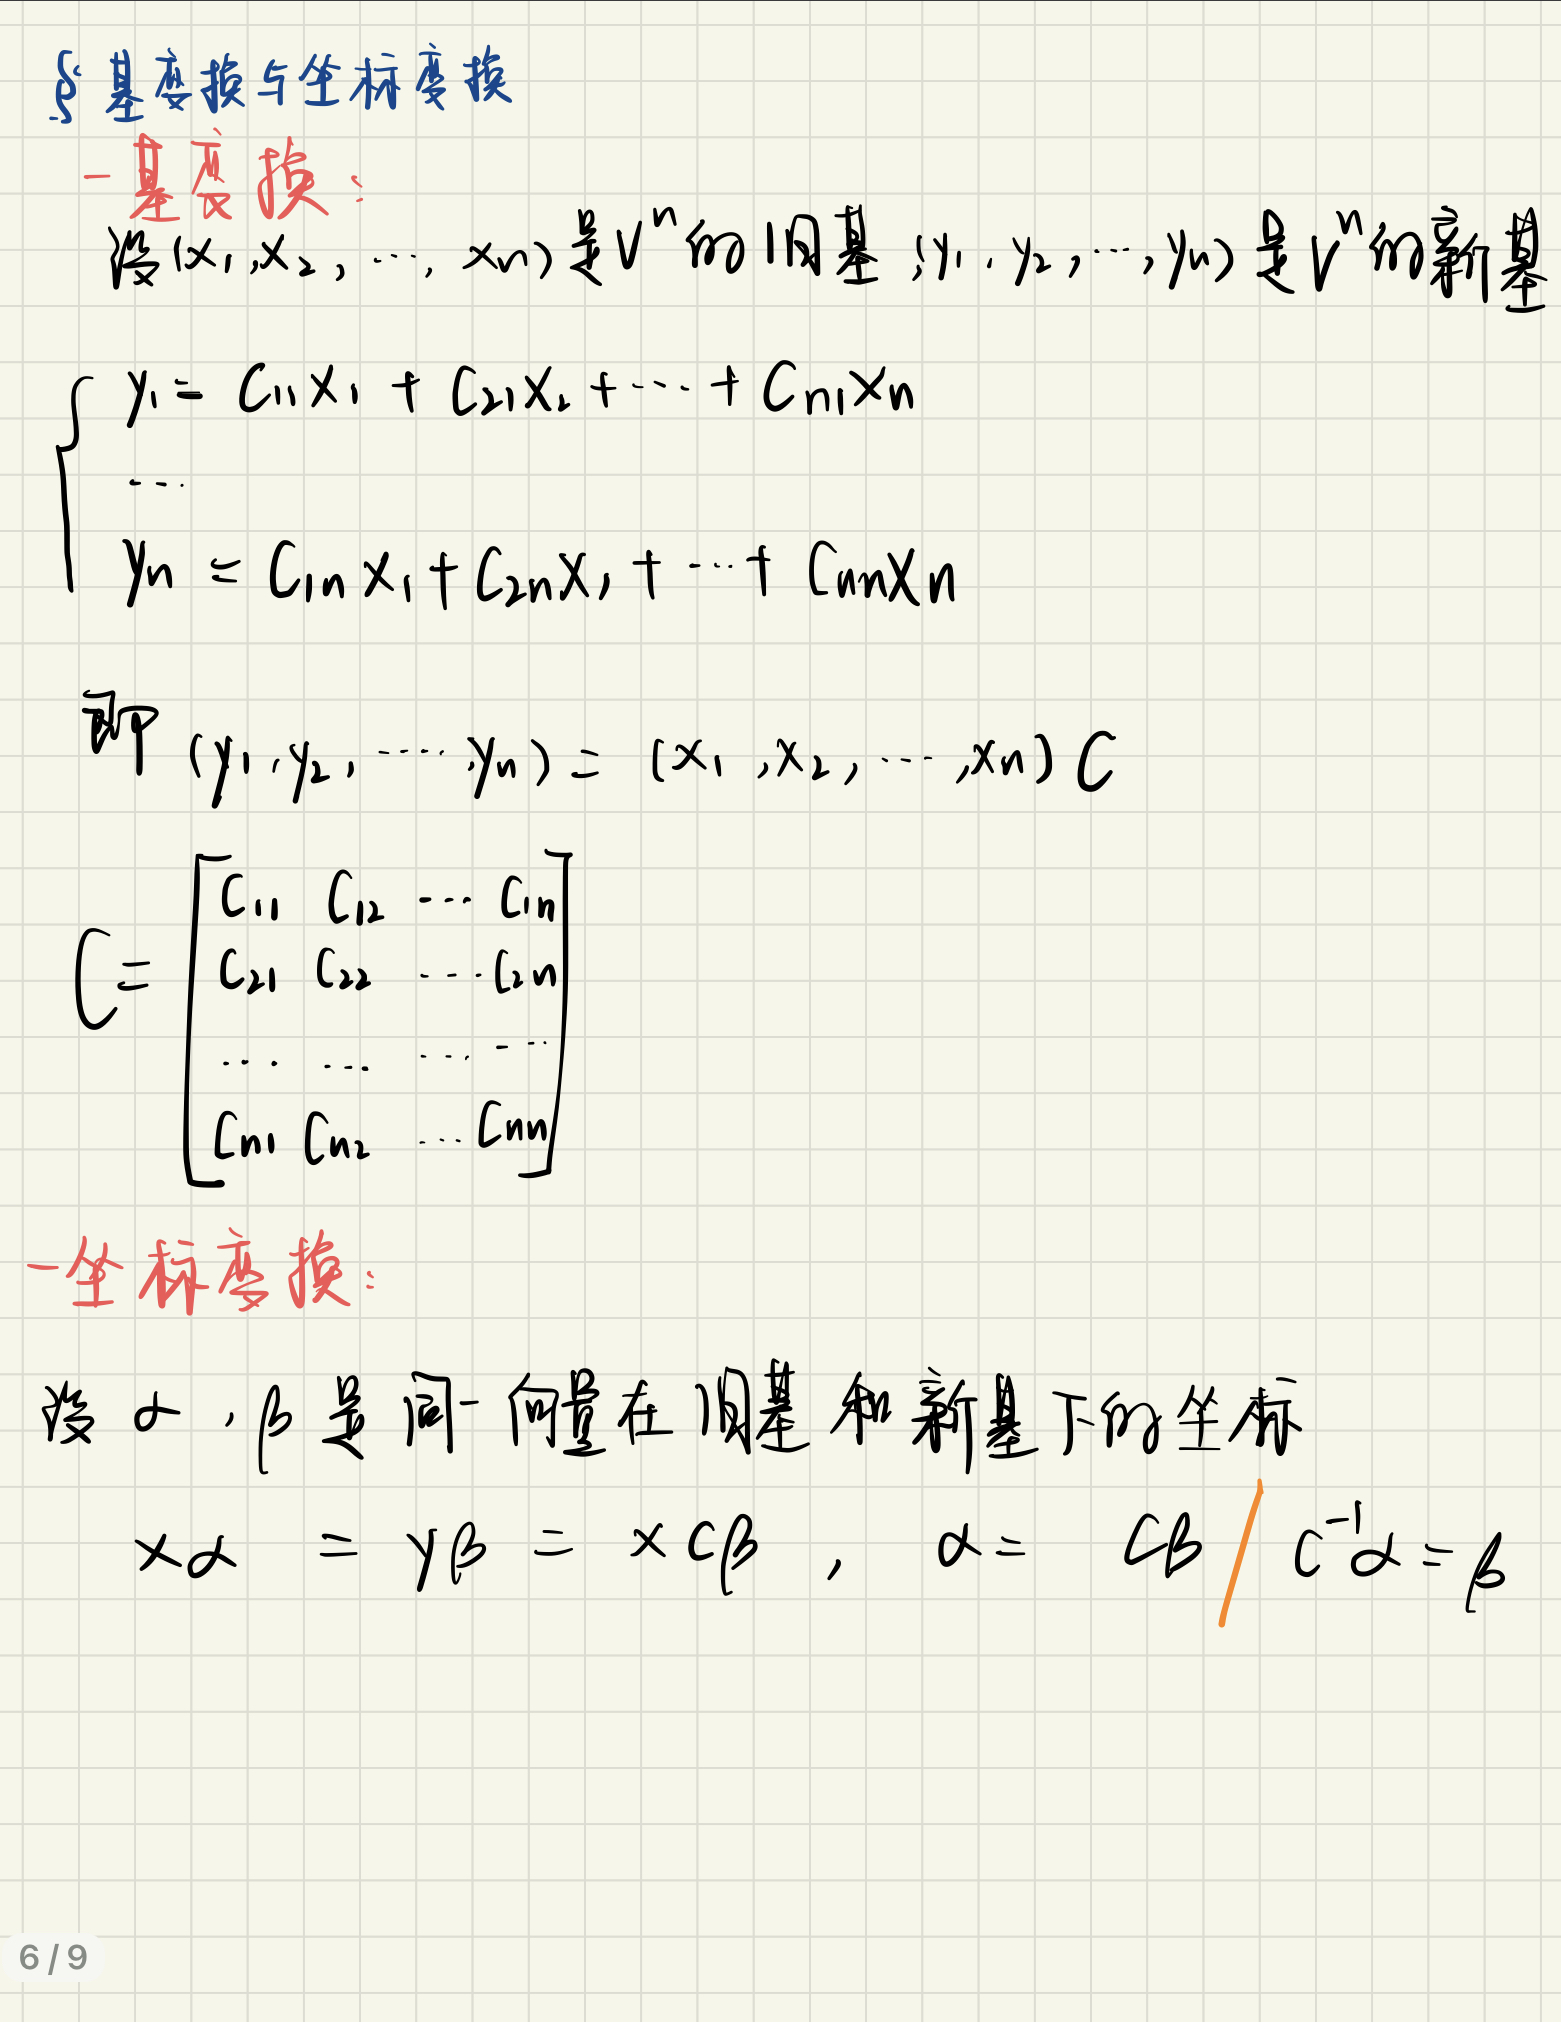 § 基变换与坐标变换
-基变换:
设(x₁,x₂,…,xn)是Vⁿ的旧基,(y₁,y₂,…,yn)是Vⁿ的新基
y₁= C₁₁x₁ + C₂₁x₂+…+ Cn₁xn
…
yn = C₁nx₁+C₂nx₁+…+ Cnnxn
即 (y₁,y₂,…,yn)= (x₁,x₂,…,xn)C
C₁₁ C₁₂ … C₁n
C= C₂₁ C₂₂ … C₂n
… … … …
Cn₁ Cn₂ … Cnn
-坐标变换:
设α,β是同一向量在旧基和新基下的坐标
xα = yβ = xCβ , α= Cβ / C⁻¹α=β
6/9